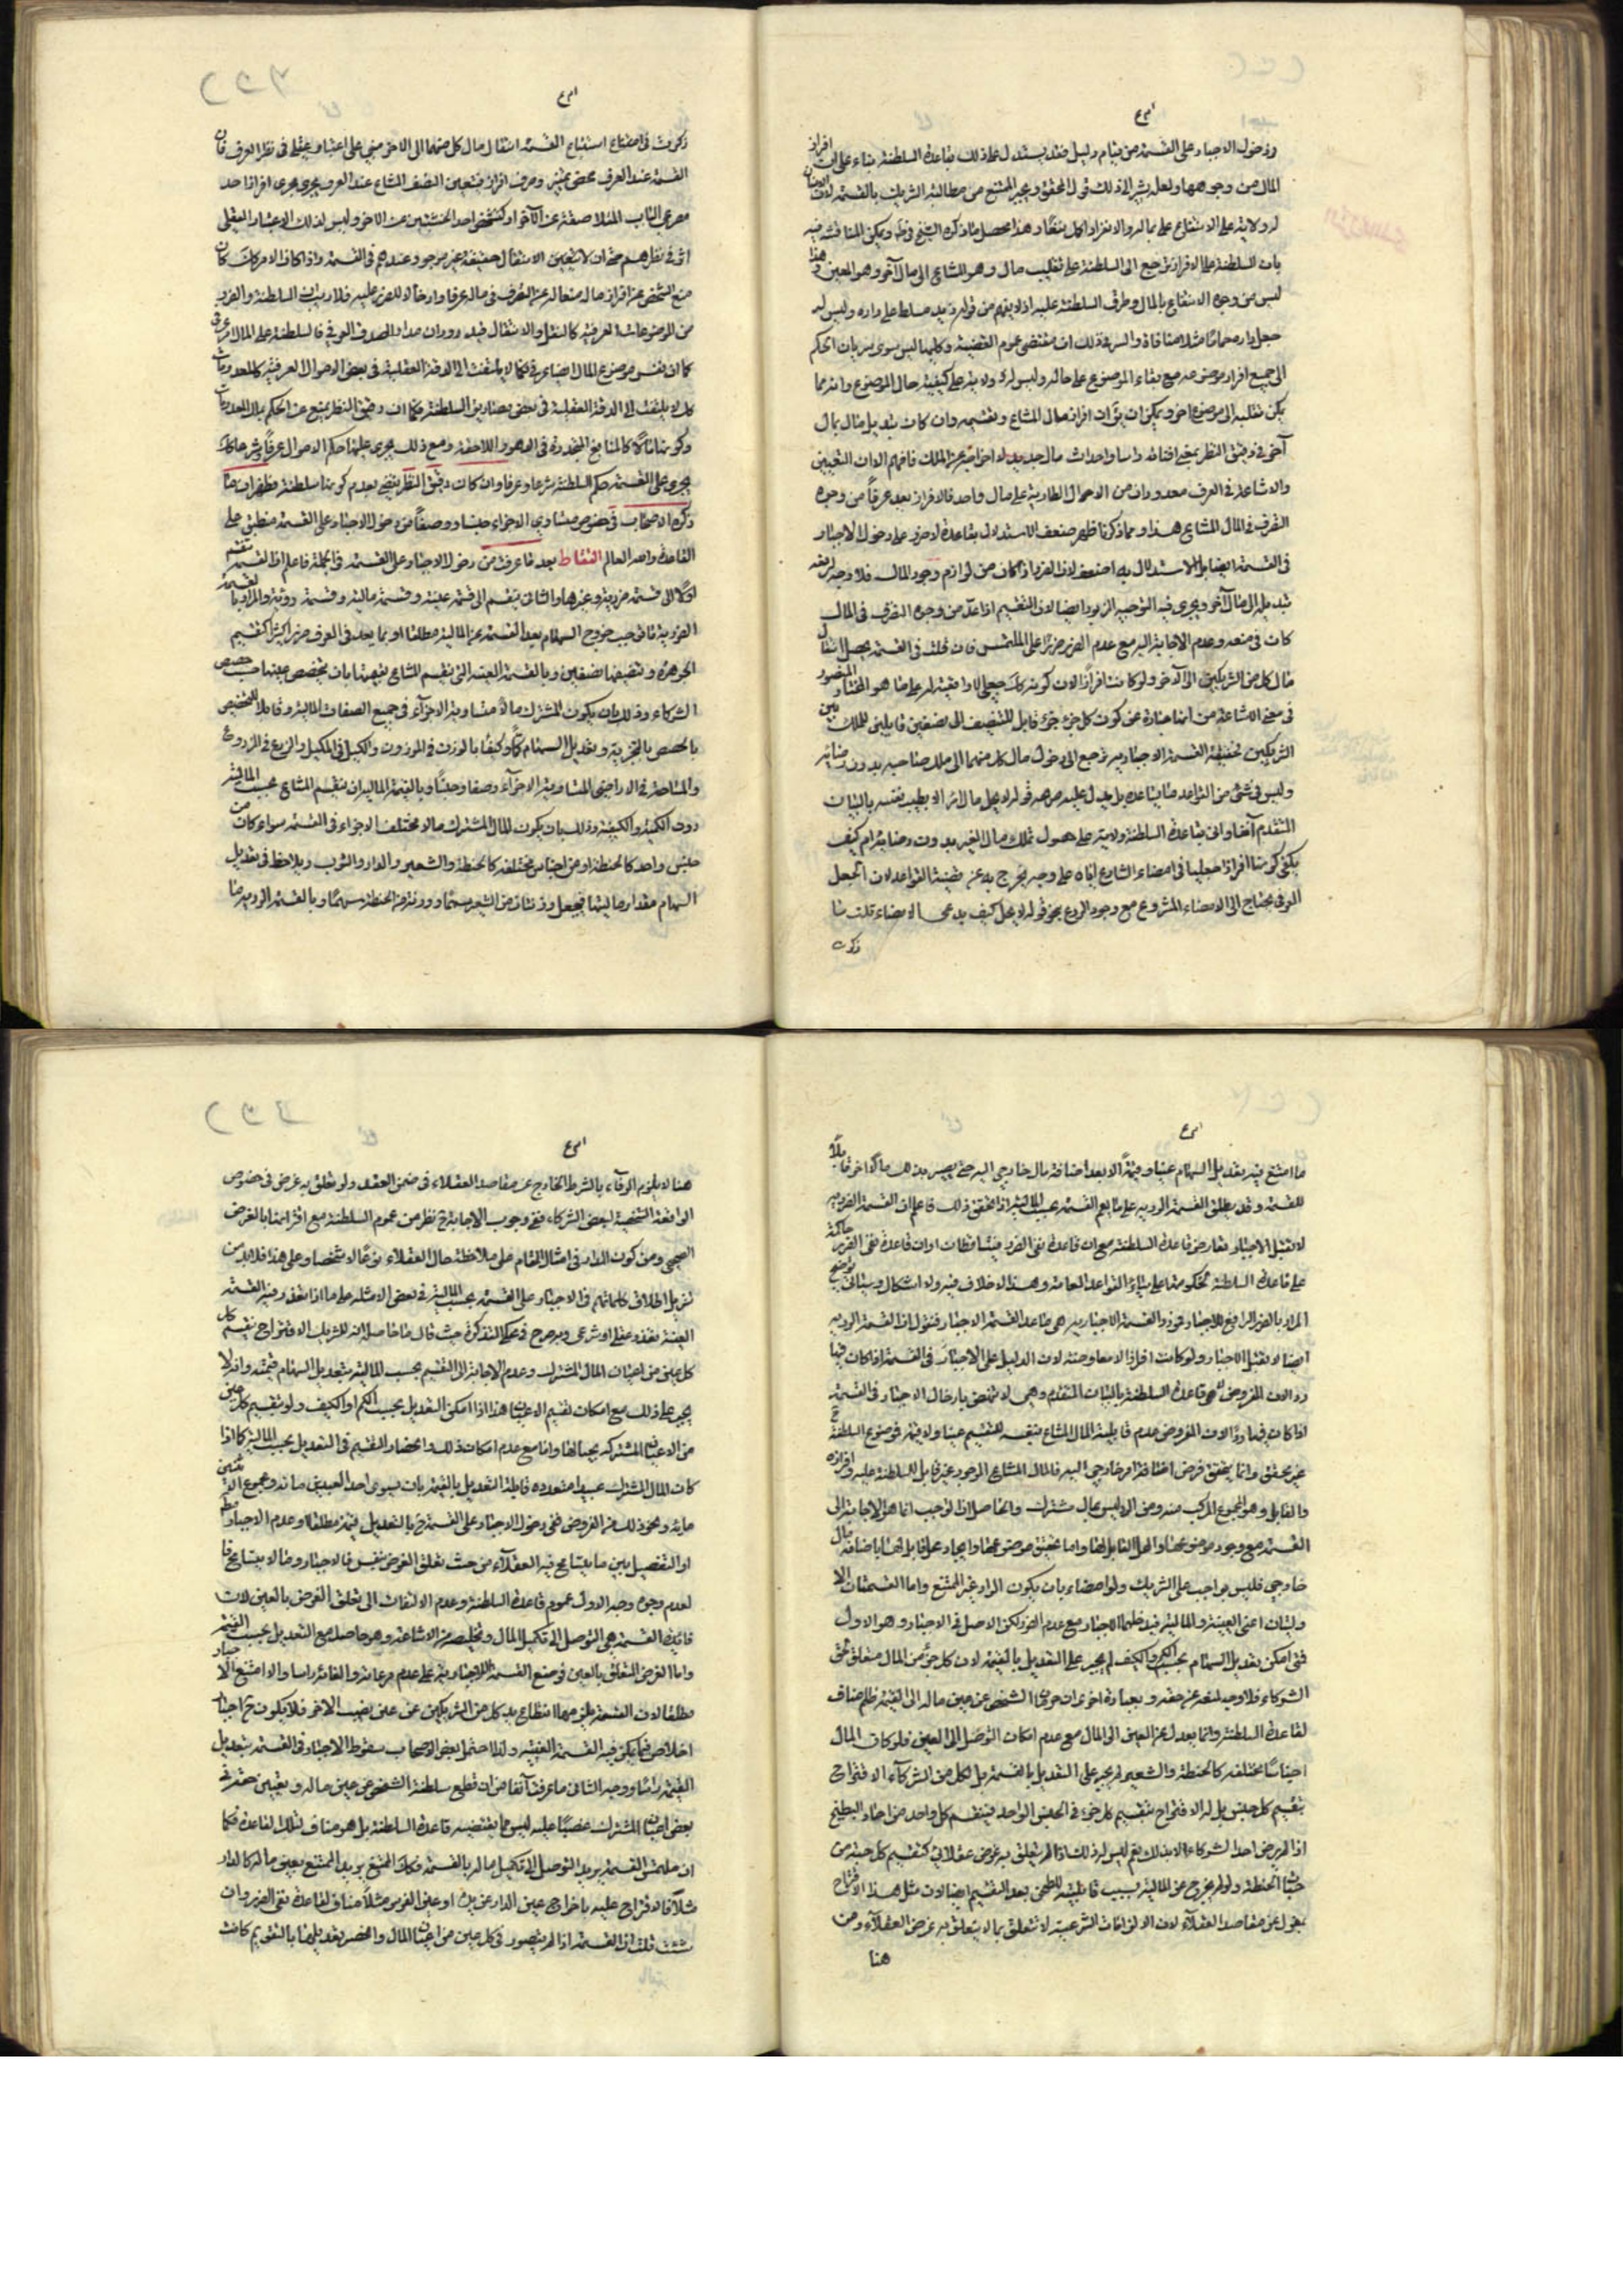 ودخول الاجبار على القسمة من قيام دليل فقد يستدل على ذلك بقاعدة السلطنة بناء على ان افراز
المال من وجوهها ولعله يشير الى ذلك قول المحقق ويجبر الممتنع مع مطالبة الشريك بالقسمة لان الانسان
له ولاية على الانتفاع على بماله والانفراد اكمل نفعا وهذا محصل ما ذكره الشيخ في ويمكن المناقشة فيه
بان السلطنة على الافراز ترجع الى السلطنة على تقليب مال وهو المشاع الى مال آخر وهو المعين وهذا
ليس من وجوه الانتفاع بالمال وطرق السلطنة عليه اذ لا يفهم من قولهم زيد مسلط على داره وليس له
جعل داره حماما مثلا منافاة والسر في ذلك ان مقتضى عموم القضية وكليتها ليس سوى سريان الحكم
الى جميع افراد موضوعه مع بقاء الموضوع على حاله وليس له ولاية على كيفية حال الموضوع وانه مما
يمكن تقلبه الى موضوع آخر ويمكن ان يقال ان افراز مال المشاع وتقسيمه وان كان تبديل مال بمال
آخر في دقيق النظر بمعنى افنائه راسا واحداث مال جديد لا اخراجه عن الملك فافهم الا ان التعيين
والاشاعة في العرف معدودان من الاحوال الطارية على مال واحد فالافراز يعد عرفا من وجوه
التصرف في المال المشاع هذا ومما ذكرنا ظهر ضعف الاستدلال بقاعدة لا ضرر على دخول الاجبار
في القسمة ايضا بل الاستدلال به اضعف لان الضرر اذا كان من لوازم وجود المال فلا وجه لرفعه
تبديله الى مال آخر ويجرى فيه التوجيه المزبور ايضا لان التقسيم اذا عد من وجوه التصرف في المال
كان في منعه وعدم الاجابة اليه مع عدم الضرر ضررا على الملتمس فان قلت في القسمة يحصل انتقال
مال كل من الشريكين الى الآخر ولو كانت افرازا لان كونه كك جعلى لا واقعية له على ما هو المختار المنصور
في معنى الاشاعة من انها عبارة عن كون كل جزء جزء قابل للتنصيف الى نصفين قابلين لملك بين
الشريكين فحقيقة القسمة الاجبارية ترجع الى دخول مال كل منهما الى ملك صاحبه بدون رضائه
وليس في شئ من القواعد ما يساعده بل يدل عليه صريح قوله لا يحل مال امرء الا بطيب نفسه بالبيان
المتقدم آنفا وانى بقاعدة السلطنة ولاية على حصول تملك مال الغير بدون رضائه ام كيف
يكفى كونها افرازا جعليا في امضاء الشارع اياه على وجه يخرج به عن قضية القواعد لان الجعل
العرفى يحتاج الى الامضاء المشروع مع وجود الردع بنحو قوله لا يحل كيف يدعى الامضاء قلت ما
ذكرت
ذكرت في امتناع استتباع القسمة انتقال مال كل منهما الى الآخر مبنى على اعتبار عقلى في نظر العرف فان
القسمة عند العرف محض تميز وصرف افراز فتعيين النصف المشاع عند العرف يجرى مجرى افراز احد
مصرعى الباب المتلاصقة عن الآخر او كتشخص احد الخشبتين عن الآخر وليس لذلك الاعتبار العقلى
اثر في نظرهم حتى ان لا يتعين الانتقال حقيقة غير موجود عندهم في القسمة واذا كان الامر كك كان
منع الشخص عن افراز ماله منعا له عن التصرف في ماله عرفا وادخالا للضرر عليه فلا ريب ان السلطنة والضرر
من الموضوعات العرفية كالنقل والانتقال فيدور ان مدار الصدق العرفى فالسلطنة على المال عرفى
كما ان نفس موضوع المال ايضا عرفى فكما لا يلتفت الى الدقة العقلية في بعض الاحوال العرفية كالمعدومات
كك لا يلتفت الى الدقة العقلية في بعض مصاديق السلطنة فكما ان دقيق النظر يمنع عن الحكم بتلك المعدومات
وكونها مالا كالمنافع المتجددة في الدهور اللاحقة ومع ذلك يجرى عليها حكم الاموال عرفا وشرعا كك
يجرى على القسمة حكم السلطنة شرعا وعرفا وان كان دقيق النظر يقضى بعدم كونها سلطنة فظهر ان ما
ذكره الاصحاب في خصوص متساوى الاجزاء جنسا ووصفا من دخول الاجبار على القسمة منطبق على
القاعدة والله العالم التقاط بعد ما عرفت من دخول الاجبار على القسمة في الجملة فاعلم ان القسمة تنقسم
اولا الى قسمة ضررية وغيرها والثانى ينقسم الى قسمة عينية وقسمة مالية وقسمة ردية والمراد بالقسمة
الضررية ما توجب خروج السهام بعد القسمة عن المالية مطلقا او بما يعد في العرف ضررا كثيرا كتقسيم
الجوهرة وتنصيفها نصفين وبالقسمة العينية التى تقسم المشاع بعينها بان تخصص بعينها حصص
الشركاء وذلك بان يكون المشترك مالا متساوية الاجزاء في جميع الصفات المالية وقابلا للتخصيص
بالحصص بالتجزية وتعديل السهام كما وكيفا بالوزن في الموزون والكيل في المكيل والذرع في المذروع
والمساحة في الاراضى المتساوية الاجزاء وصفا وجنسا وبالقسمة المالية ان تقسم المشاع بحسب المالية
دون الكمية والكيفية وذلك بان يكون المال المشترك مالا مختلف الاجزاء في القسمة سواء كان من
جنس واحد كالحنطة او من اجناس مختلفة كالحنطة والشعير والدار والثوب ويلاحظ في تعديل
السهام مقدار ماليتها فيجعل وزنتان من الشعير سهما ووزنة من الحنطة سهما وبالقسمة الردية ما
ما امتنع فيه تعديل السهام عينا وقيمة الا بعد اضافة مال خارجى اليه حتى يصير بذلك مالا آخر قابلا
للقسمة وقد يطلق القسمة الردية على ما يعم القسمة بحسب المالية اذا تحقق ذلك فاعلم ان القسمة الضررية
لا تقبل الاجبار لتعارض قاعدة السلطنة مع ان قاعدة نفى الضرر فيتساقطان او ان قاعدة نفى الضرر حاكمة
على قاعدة السلطنة كحكومتها على سائر القواعد العامة وهذا لا خلاف فيه ولا اشكال وسيأتى توضيح
المراد بالضرر الرافع للاجبار فرد والقسمة الاجبارية هى ما عدا القسمة الاجبار فنقول ان القسمة الردية
ايضا لا تقبل الاجبار ولو كانت افرازا لا معاوضة لان الدليل على الاجبار في القسمة اذا كان فيها
رد الان المفروض هى قاعدة السلطنة بالبيان المتقدم وهى لا تنهض بادخال الاجبار في القسمة
اذا كان فيها رد الان المفروض عدم قابلية المال المشاع بنفسه للتقسيم عينا ولا قيمة فموضوع السلطنة ح
غير محقق وانما يتحقق فرض اضافة امر خارجى اليه فالمال المشاع الموجود غير قابل للسلطنة عليه وافرازه
والقابل وهو المجموع المركب منه ومن الرد ليس بمال مشترك والحاصل ان الموجب انما هو الاجابة الى
القسمة مع وجود موضوعها والمحل القابل لها واما تحقيق موضوعها وايجاد محل قابل لها باضافة مال
خارجى فليس بواجب على الشريك ولو امضاه بان يكون الراد غير الممتنع واما القسمتان الا
وليان اعنى العينية والمالية فيدخلهما الاجبار مع عدم الضرر لكن الاصل في الاجبار وهو الاول
فمتى امكن تعديل السهام بحسب الكم والكيف لم يجبر على التعديل بالقيمة لان كل جزء من المال متعلق حق
الشركاء فلا وجه لمنعه عن حقه وبعبارة اخرى ان حرمان الشخص عن عين ماله الى القيمة ظلم مناف
لقاعدة السلطنة وانما يعدل عن العين الى المال مع عدم امكان التوصل الى العين فلو كان المال
اجناسا مختلفة كالحنطة والشعير لم يجبر على التعديل بالقسمة بل لكل من الشركاء الاقتراح
بتقسيم كل جنس بل له الاقتراح بتقسيم كل جزء في الجنس الواحد فينقسم كل واحد من احاد البطيخ
اذا لم يرض احد الشركاء الا بذلك نعم ليس له ذلك اذا لم يتعلق به غرض عقلائى كتقسيم كل حبة من
حبات الحنطة ولو لم يخرج عن المالية بسبب قابليته للطحن بعد التقسيم ايضا لان مثل هذا الاقتراح
بمعزل عن مقاصد العقلاء لان الالزامات الشرعية لا تتعلق بما لا يتعلق به غرض العقلاء ومن
هنا
هنا لا يلزم الوفاء بالشرط الخارج عن مقاصد العقلاء في ضمن العقد ولو تعلق به غرض في خصوص
الواقعة الشخصية لبعض الشركاء ففى وجوب الاجابة ح نظر من عموم السلطنة مع اقترانها بالغرض
الصحيح ومن كون المدار في امثال المقام على ملاحظة حال العقلاء نوعا لا شخصا وعلى هذا فلا بد من
تنزيل اطلاق كلماتهم في الاجبار على القسمة بحسب المالية في بعض الامثلة على ما اذا تعذر فيه القسمة
العينية تعذر عقلى او شرعى وبه صرح في محكى التذكرة حيث قال ما حاصله ان للشريك الاقتراح بتقسيم كل
كل عين من اعيان المال المشترك وعدم الاجابة الى التقسيم بحسب المالية بتعديل السهام قيمة وانه لا
يجبر على ذلك مع امكان تقسيم الاعيان هذا اذا امكن التعديل بحسب الكم او الكيف ولو بتقسيم كل عين
من الاعيان المشتركة بحيالها واما مع عدم امكان ذلك وانحصار التقسيم في التعديل بحسب المالية كما اذا
كان المال المشترك عبيدا متعددة قابلة التعديل بالقيمة بان يسوى احد العبدين مائة ومجموع الاثنين
مائة ونحو ذلك من الفروض ففى دخول الاجبار على القسمة ح بالتعديل قيمة مطلقا وعدم الاجبار مط
او التفصيل بين ما يتسامح فيه العقلاء من حيث تعلق الغرض بنفس فالاجبار وما لا يتسامح فا
لعدم وجوه وجه الاول عموم قاعدة السلطنة وعدم الالتفات الى تعلق الغرض بالعين لان
فائدة القسمة هى التوصل الى تكميل المال وتخليصه من الاشاعة وهو حاصل مع التعديل بحسب القيمة
واما الغرض المتعلق بالعين فوضع القسمة الاجبارية على عدم مراعاته والغائه راسا والا امتنع الاجبار
مطلقا لان القسمة يلزمها انقطاع يد كل من الشريكين عن عين نصيب الآخر فلا يكون ح اجبار
اخلاص فيما يمكن فيه القسمة العينية ولذا احتمل بعض الاصحاب سقوط الاجبار في القسمة بتعديل
القيمة راسا ووجه الثانى ما عرفت آنفا من ان قطع سلطنة الشخص عن عين ماله وتعيين حقه في
بعض اعيان المشترك غصبا عليه ليس مما يقتضيه قاعدة السلطنة بل هو مناف لتلك القاعدة فكما
ان ملتمس القسمة يريد التوصل الى تكميل ماله بالقسمة فكك الممتنع يريد التمتع بعين ماله كالدار
مثلا فالاقتراح عليه باخراج عين الدار عن يده او عين الفرس مثلا مناف لقاعدة نفى الضرر وان
شئت قلت ان القسمة اذا لم يتصور في كل عين من اعيان المال وانحصر تعديلها بالتقويم كانت